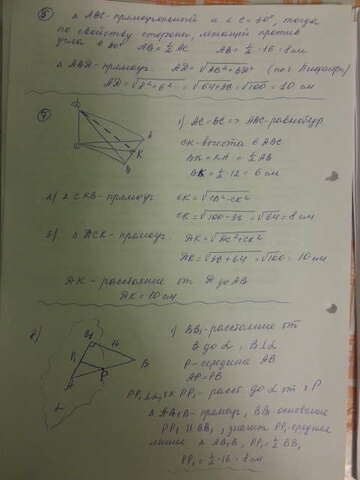 ⑤ △ ABC-прямоугольный и ∠ C = 30°, тогда
по свойству стороны, лежащей против
угла в 30° AB = ½ AC AB = ½ · 16 = 8 см
△ ABD-прямоуг. AD = √AB² + BD² (по т. Пифагора)
AD = √8² + 6² = √64 + 36 = √100 = 10 см
1) AC = BC => ABC-равнобедр
CK-высота в ABC
BK = KA = ½ AB
BK = ½ · 12 = 6 см
2) △ CKB-прямоуг. CK = √CB² - CK²
CK = √100 - 36 = √64 = 8 см
3) △ DCK-прямоуг. DK = √DC² + CK²
DK = √36 + 64 = √100 = 10 см
DK - расстояние от D до AB
DK = 10 см
1) BB₁-расстояние от
B до α, B⊥α
P-середина AB
AP = PB
PP₁ - расст. до α от P
△ AB₁B - прямоуг, BB₁-основание
PP₁ || BB₁, значит PP₁-средняя
линия △ AB₁B, PP₁ = ½ BB₁
PP₁ = ½ · 16 = 8 см